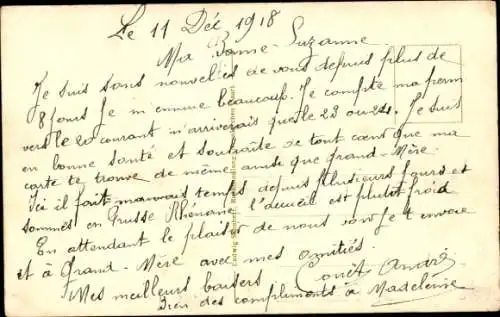 Le 11 Déc 1918
Ma Bonne Suzanne
Je suis sans nouvelles de vous depuis plus de
8 jours Je m'ennuie beaucoup. Je compte ma perm
vers le 20 courant n'arriverais que le 23 ou 24. Je suis
en bonne santé et souhaite de tout cœur que ma
carte te trouve de même ainsi que Grand-Mère.
Ici il fait mauvais temps depuis plusieurs jours et
sommes en Prusse Rhénane l'accueil est plutôt froid
En attendant le plaisir de nous voir je t'envoie
et à Grand-Mère avec mes amitiés.
Mes meilleurs baisers
André
Bien des compliments à Madeleine
Ludwig